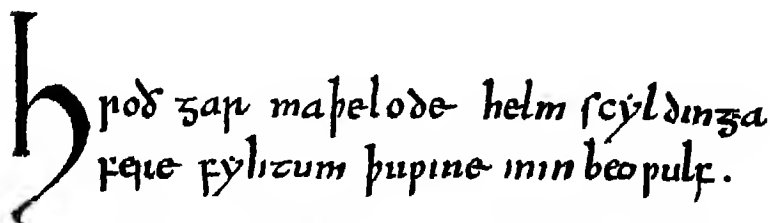 Hroð gar maþelode helm scyldinga
fere fyhtum þuƿine min beoƿulf.